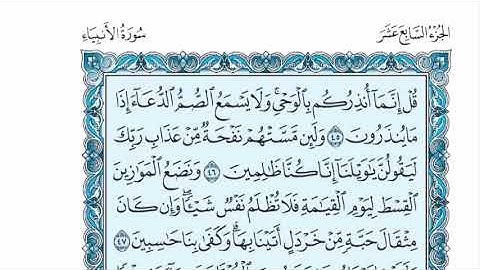 الجزء السابع عشر
سورة الأنبياء
قُلْ إِنَّمَآ أُنذِرُكُم بِالْوَحْيِ ۚ وَلَا يَسْمَعُ الصُّمُّ الدُّعَآءَ إِذَا
مَا يُنذَرُونَ ٤٥ وَلَئِن مَّسَّتْهُمْ نَفْحَةٌ مِّنْ عَذَابِ رَبِّكَ
لَيَقُولُنَّ يَٰوَيْلَنَآ إِنَّا كُنَّا ظَٰلِمِينَ ٤٦ وَنَضَعُ الْمَوَٰزِينَ
الْقِسْطَ لِيَوْمِ الْقِيَٰمَةِ فَلَا تُظْلَمُ نَفْسٌ شَيْـًٔا ۖ وَإِن كَانَ
مِثْقَالَ حَبَّةٍ مِّنْ خَرْدَلٍ أَتَيْنَا بِهَا ۗ وَكَفَىٰ بِنَا حَٰسِبِينَ ٤٧